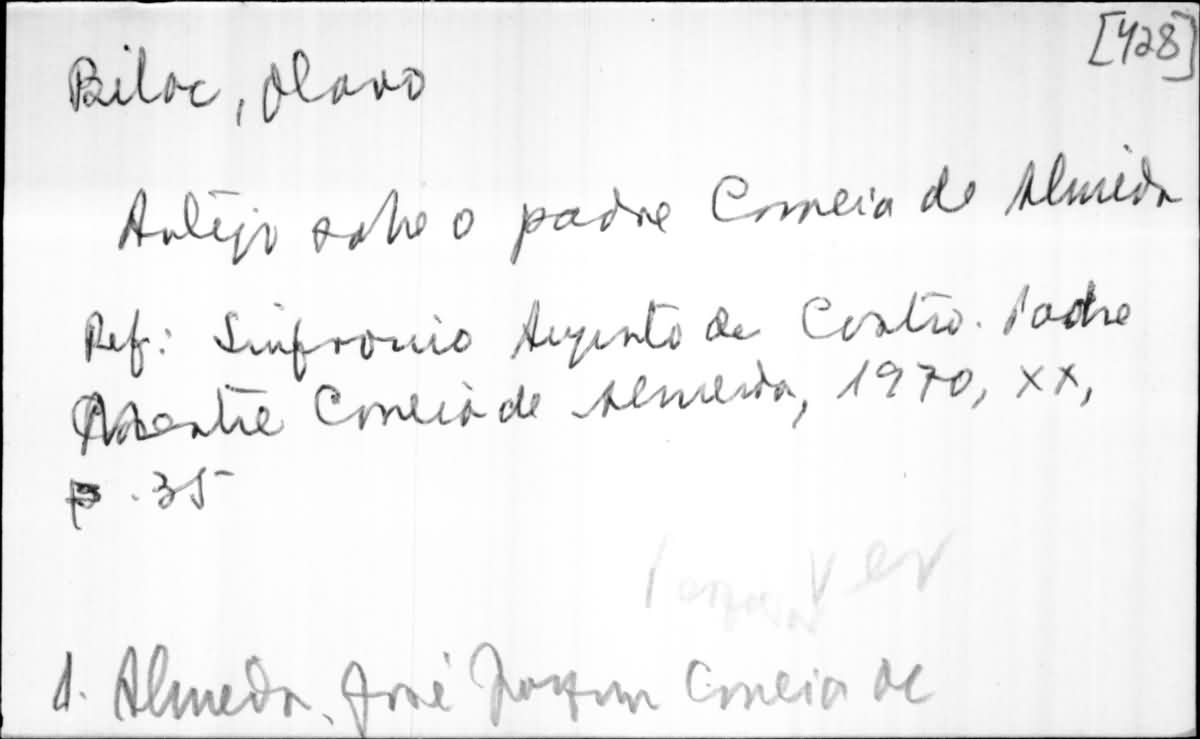 [428]
Bilac, Olavo
Artigo sobre o padre Correia de Almeida
Ref: Sinfronio Augusto de Castro. Padre
Mestre Correia de Almeida, 1970, XX,
p. 35
Ver
1. Almeida, José Joaquim Correia de